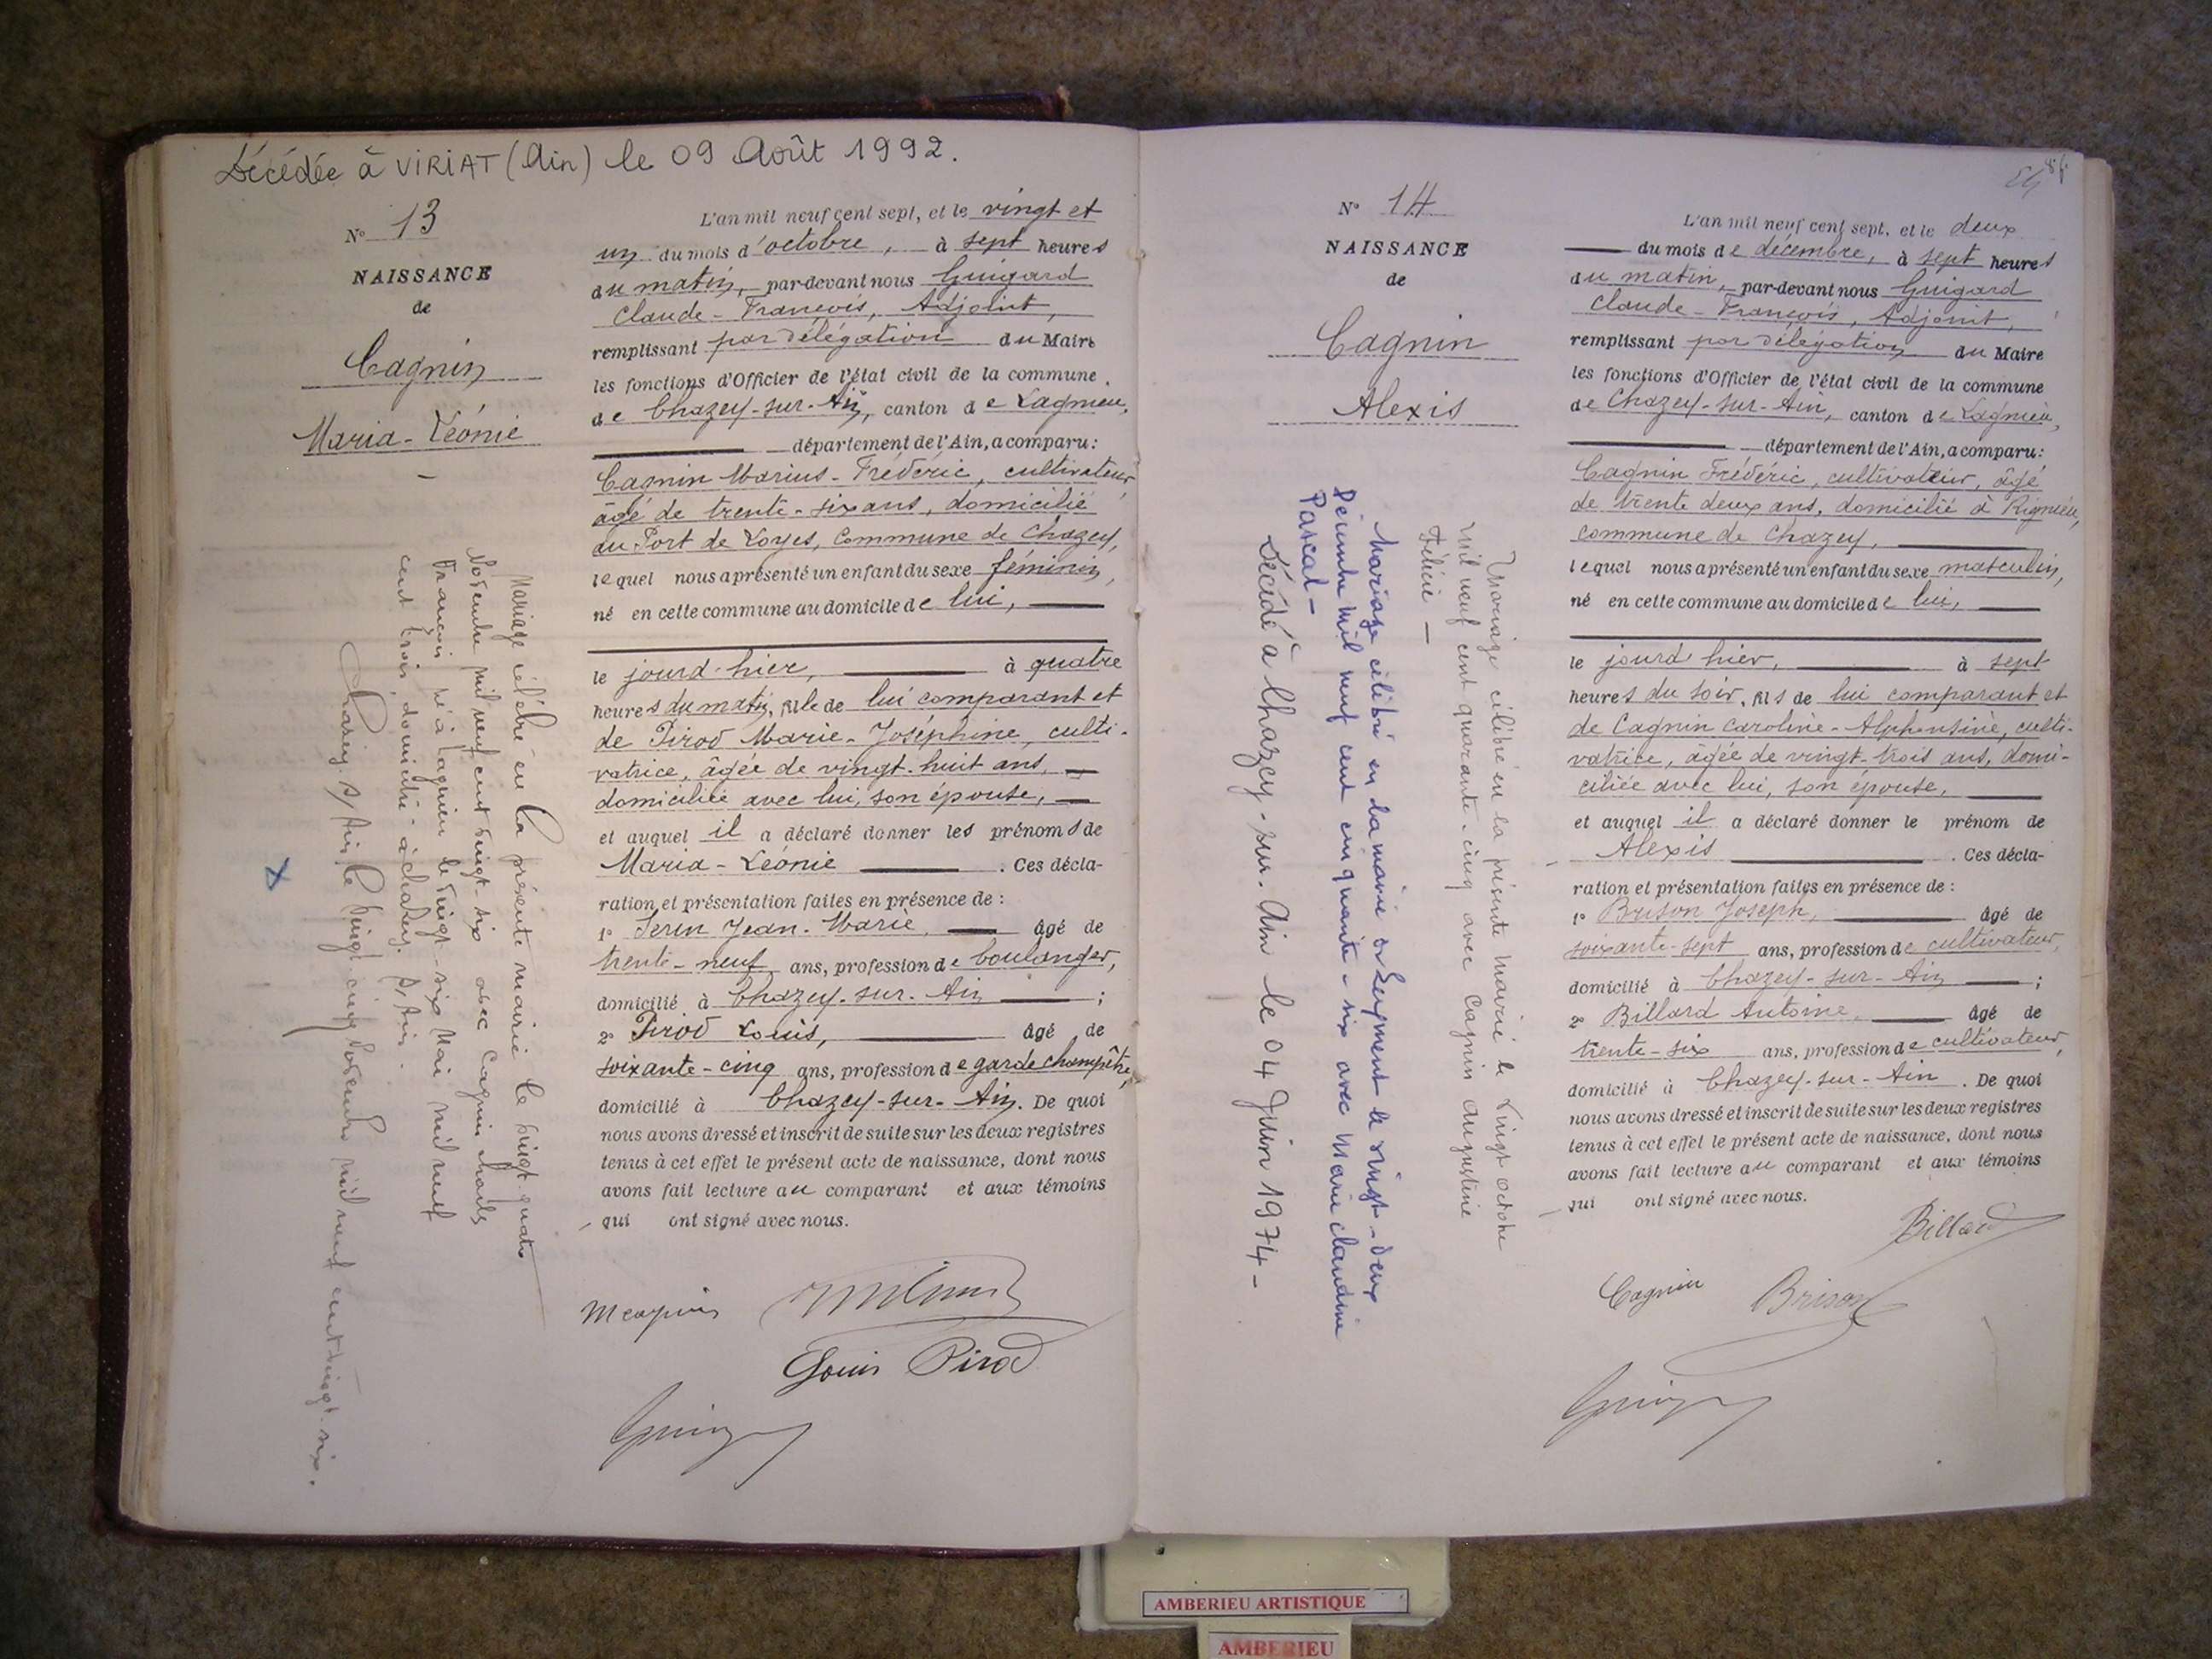 Décédée à VIRIAT (Ain) le 09 Août 1992.
N° 13
NAISSANCE
de
Cagnin
Maria-Léonie
Mariage célébré en la présente mairie le vingt-quatre
Novembre mil neuf cent vingt-six avec Cagnin Charles
François né à Lagnieu le vingt-six Mai mil neuf
cent trois, domicilié à Chazey s/ Ain.
Chazey s/ Ain le vingt-cinq Novembre mil neuf cent vingt-six.
L'an mil neuf cent sept, et le vingt et
un du mois d'octobre, à sept heures
du matin, par-devant nous Guigard
Claude-François, Adjoint,
remplissant par délégation du Maire
les fonctions d'Officier de l'état civil de la commune
de Chazey-sur-Ain, canton de Lagnieu,
département de l'Ain, a comparu:
Cagnin Marius-Frédéric, cultivateur,
âgé de trente-six ans, domicilié
au Port de Loyes, Commune de Chazey,
lequel nous a présenté un enfant du sexe féminin,
né en cette commune au domicile de lui,
le jourd-hier, à quatre
heures du matin, fille de lui comparant et
de Pirod Marie-Joséphine, culti-
vatrice, âgée de vingt-huit ans,
domiciliée avec lui, son épouse,
et auquel il a déclaré donner les prénoms de
Maria-Léonie. Ces décla-
ration et présentation faites en présence de :
1° Serin Jean-Marie, âgé de
trente-neuf ans, profession de boulanger,
domicilié à Chazey-sur-Ain ;
2° Pirod Louis, âgé de
soixante-cinq ans, profession de garde champêtre,
domicilié à Chazey-sur-Ain. De quoi
nous avons dressé et inscrit de suite sur les deux registres
tenus à cet effet le présent acte de naissance, dont nous
avons fait lecture au comparant et aux témoins
qui ont signé avec nous.
Louis Pirod
N° 14
NAISSANCE
de
Cagnin
Alexis
Mariage célébré en la présente mairie le vingt octobre
mil neuf cent quarante-cinq avec Cagnin Augustine
Félicie –
Mariage célébré en la mairie de Leyment le vingt-deux
Décembre mil neuf cent cinquante-six avec Marie Claudine
Pascal –
Décédé à Chazey-sur-Ain le 04 Juin 1974 –
L'an mil neuf cent sept, et le deux
du mois de décembre, à sept heures
du matin, par-devant nous Guigard
Claude-François, Adjoint,
remplissant par délégation du Maire
les fonctions d'Officier de l'état civil de la commune
de Chazey-sur-Ain, canton de Lagnieu,
département de l'Ain, a comparu:
Cagnin Frédéric, cultivateur, âgé
de trente deux ans, domicilié à Rignieu,
commune de Chazey,
lequel nous a présenté un enfant du sexe masculin,
né en cette commune au domicile de lui,
le jourd'hier, à sept
heures du soir, fils de lui comparant et
de Cagnin Caroline-Alphonsine, culti-
vatrice, âgée de vingt-trois ans, domi-
ciliée avec lui, son épouse,
et auquel il a déclaré donner le prénom de
Alexis. Ces décla-
ration et présentation faites en présence de :
1° Brison Joseph, âgé de
soixante-sept ans, profession de cultivateur,
domicilié à Chazey-sur-Ain ;
2° Billard Antoine, âgé de
trente-six ans, profession de cultivateur,
domicilié à Chazey-sur-Ain. De quoi
nous avons dressé et inscrit de suite sur les deux registres
tenus à cet effet le présent acte de naissance, dont nous
avons fait lecture au comparant et aux témoins
qui ont signé avec nous.
Billard
Cagnin Brison
AMBERIEU ARTISTIQUE
AMBERIEU